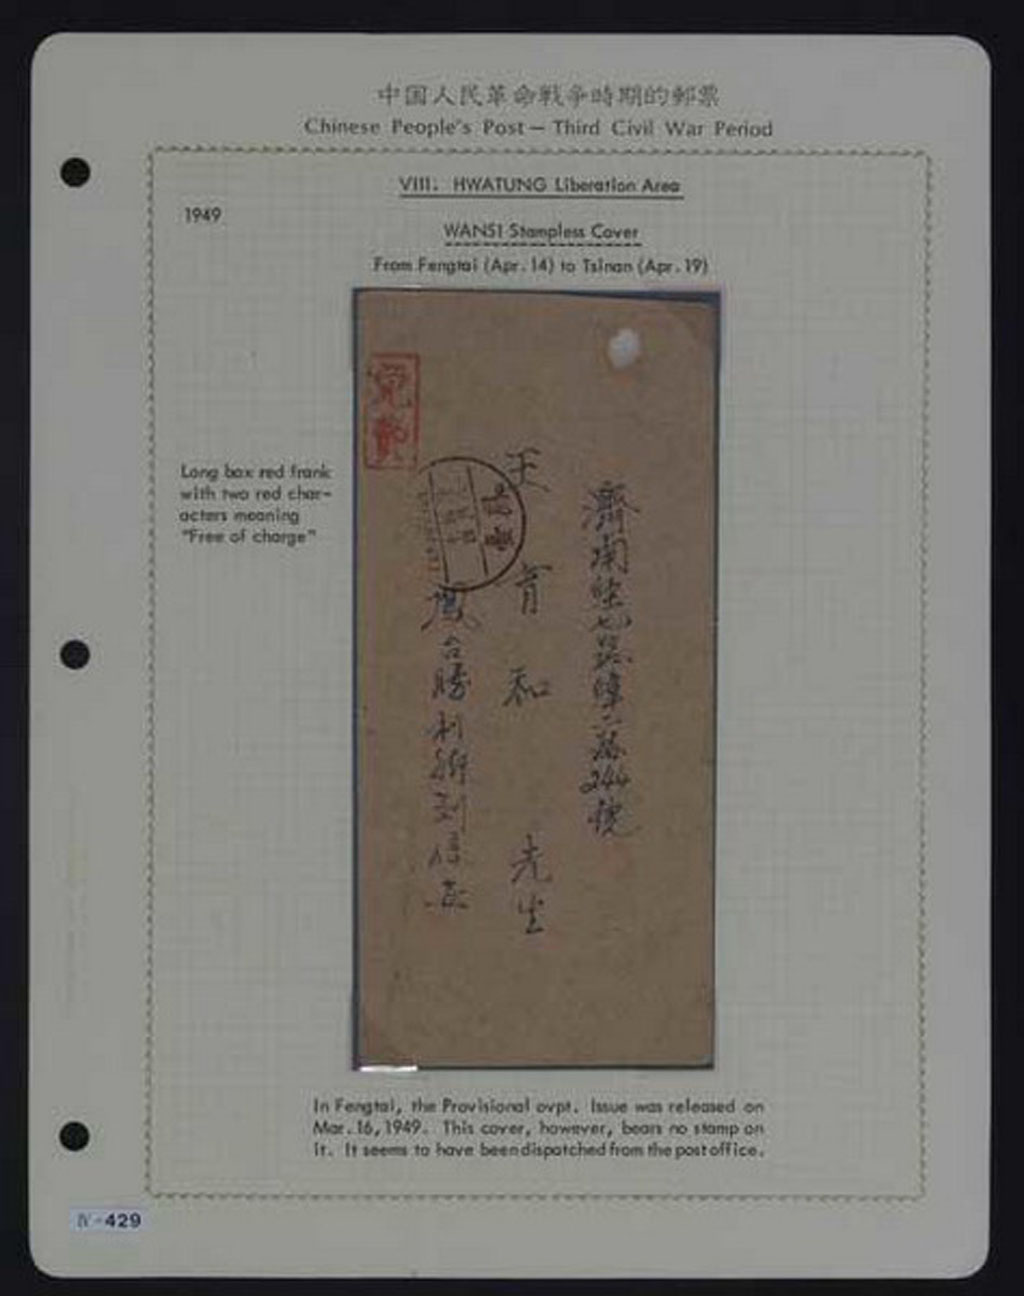 中国人民革命戦争時期的郵票
Chinese People's Post — Third Civil War Period
VIII. HWATUNG Liberation Area
1949
WANSI Stampless Cover
From Fengtai (Apr. 14) to Tsinan (Apr. 19)
Long box red frank
with two red char-
acters meaning
"Free of charge"
免費
濟南經七路緯二路244號
王育和先生
鳳台勝利街劉
In Fengtai, the Provisional ovpt. Issue was released on
Mar. 16, 1949. This cover, however, bears no stamp on
it. It seems to have been dispatched from the post office.
IV-429